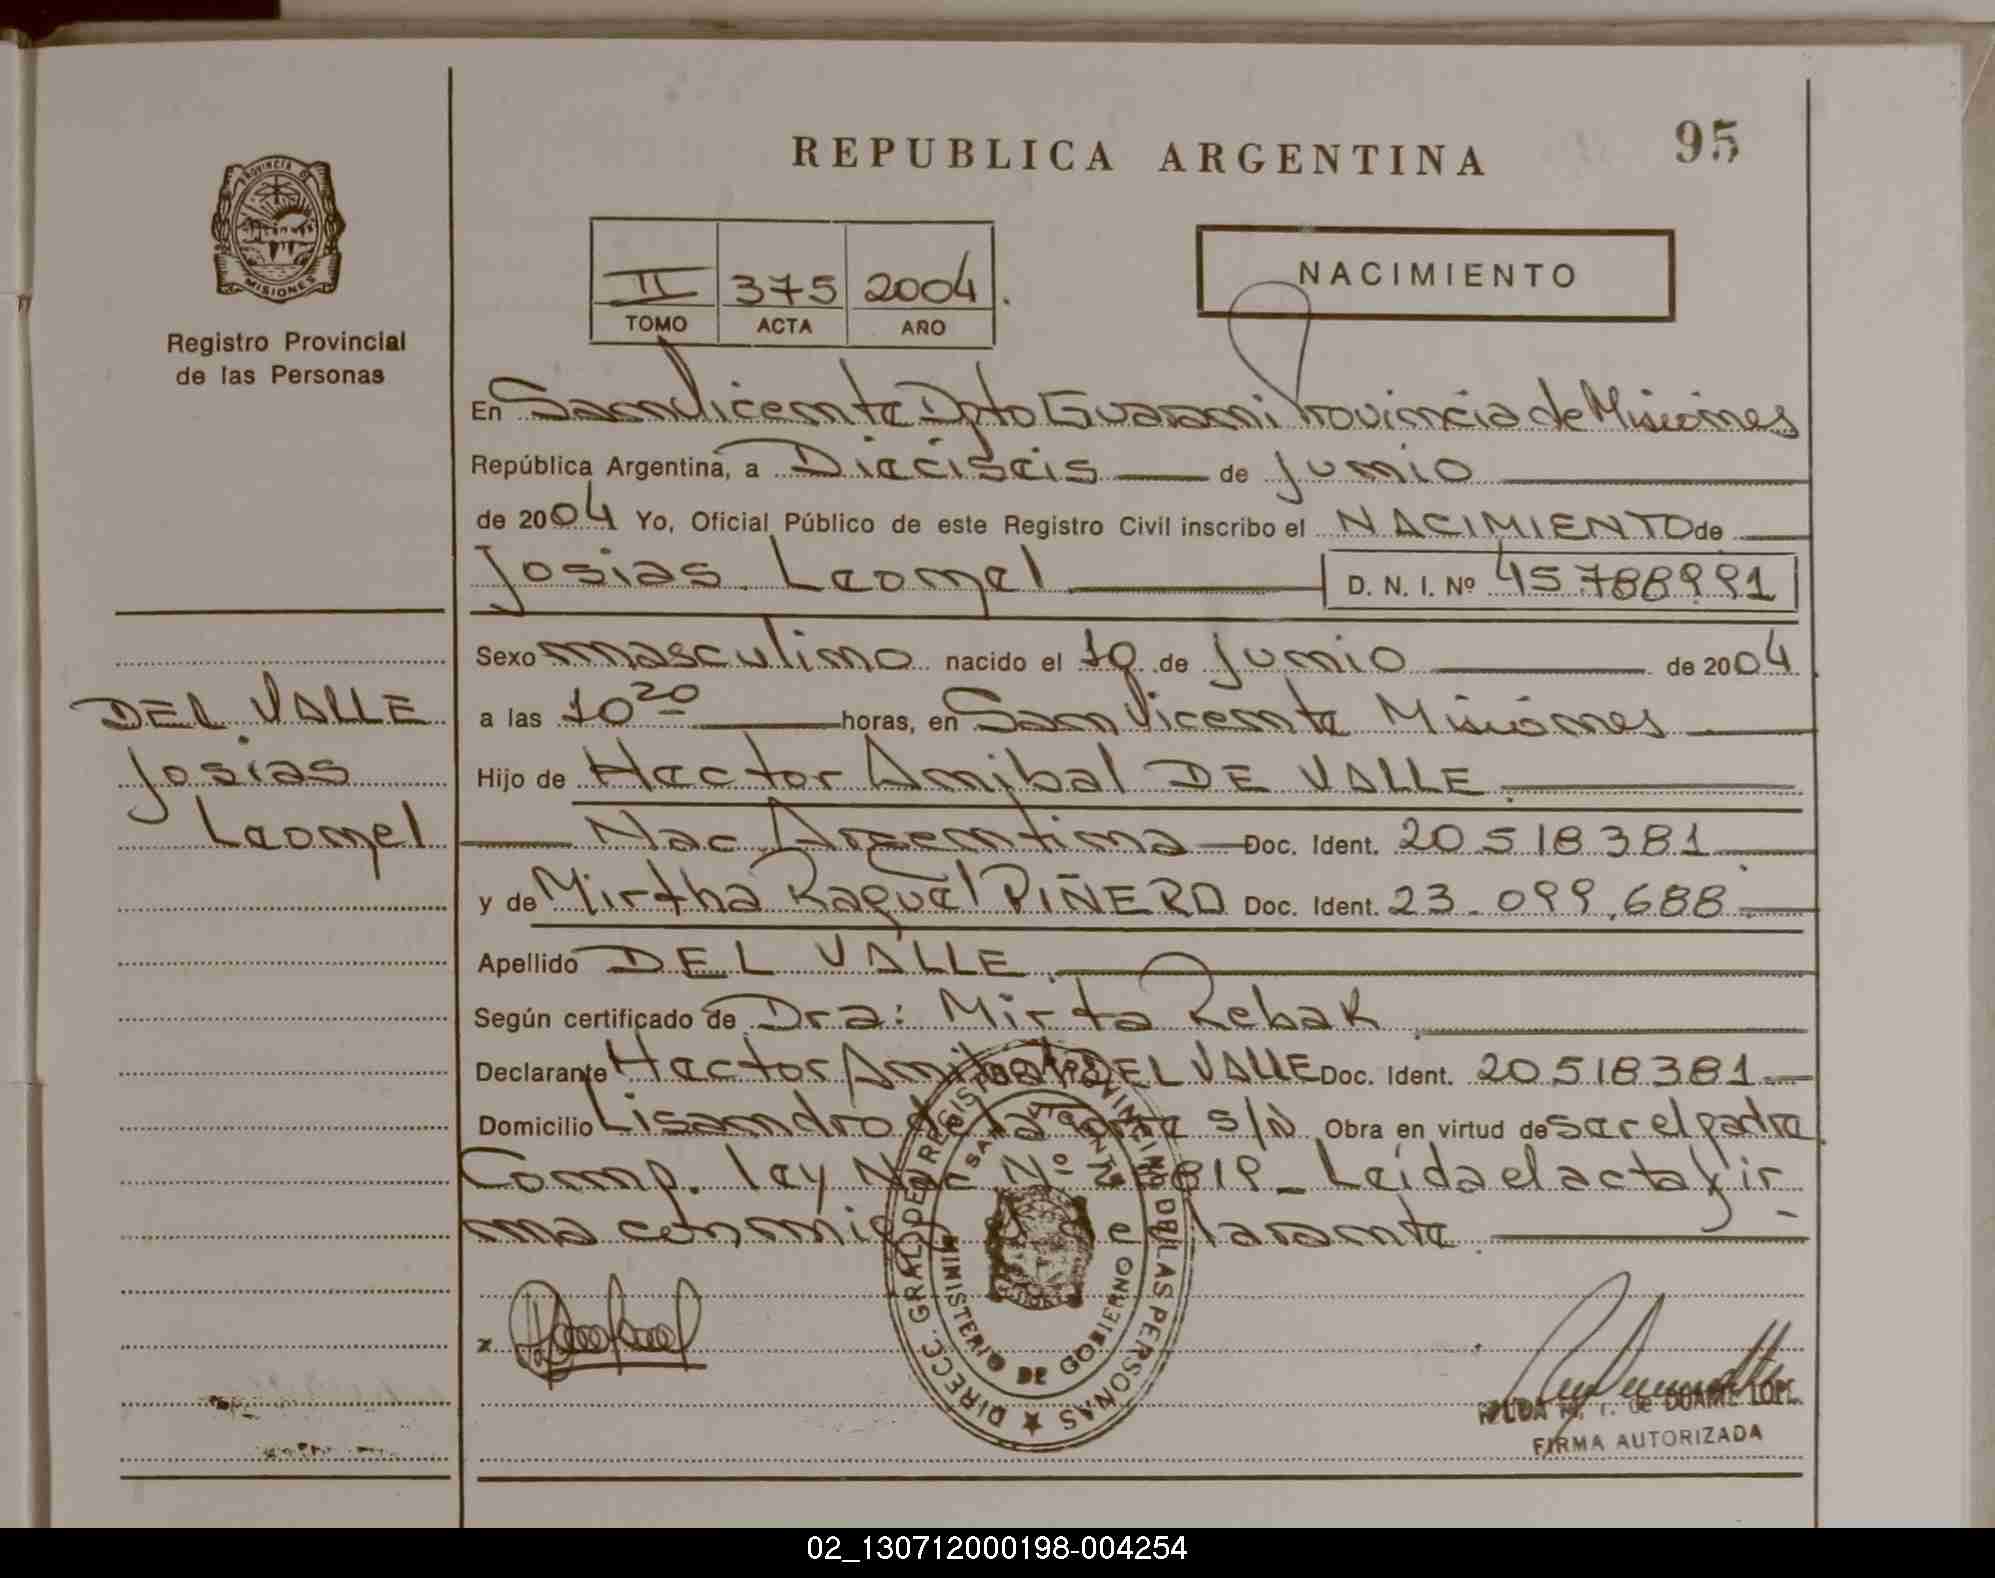 95
REPUBLICA ARGENTINA
PROVINCIA D
MISIONES
Registro Provincial
de las Personas
II 375 2004
TOMO ACTA AÑO
NACIMIENTO
En San Vicente Dpto Guarani Provincia de Misiones
República Argentina, a Dieciseis de junio
de 2004 Yo, Oficial Público de este Registro Civil inscribo el NACIMIENTO de
Josias Leonel D. N. I. Nº 45.788991
Sexo masculino nacido el 10 de junio de 2004
a las 10 20 horas, en San Vicente Misiones
Hijo de Hector Anibal DE VALLE
Nac Argentina Doc. Ident. 20518381
y de Mirtha Raquel PIÑERO Doc. Ident. 23.099.688
Apellido DEL VALLE
Según certificado de Dra: Mirta Rebak
Declarante Hector Anibal DEL VALLE Doc. Ident. 20518381
Domicilio Lisandro de la Torre s/N Obra en virtud de ser el padre
Comp. ley Nac Nº 23819_ Leida el acta fir
ma conmigo el declarante
DEL VALLE
Josias
Leonel
DIRECC. GRAL DE REGISTRO PROVINCIAL DE LAS PERSONAS
MINISTERIO DE GOBIERNO
SAN VICENTE
x
HILDA de DUARTE LOPE
FIRMA AUTORIZADA
02_130712000198-004254